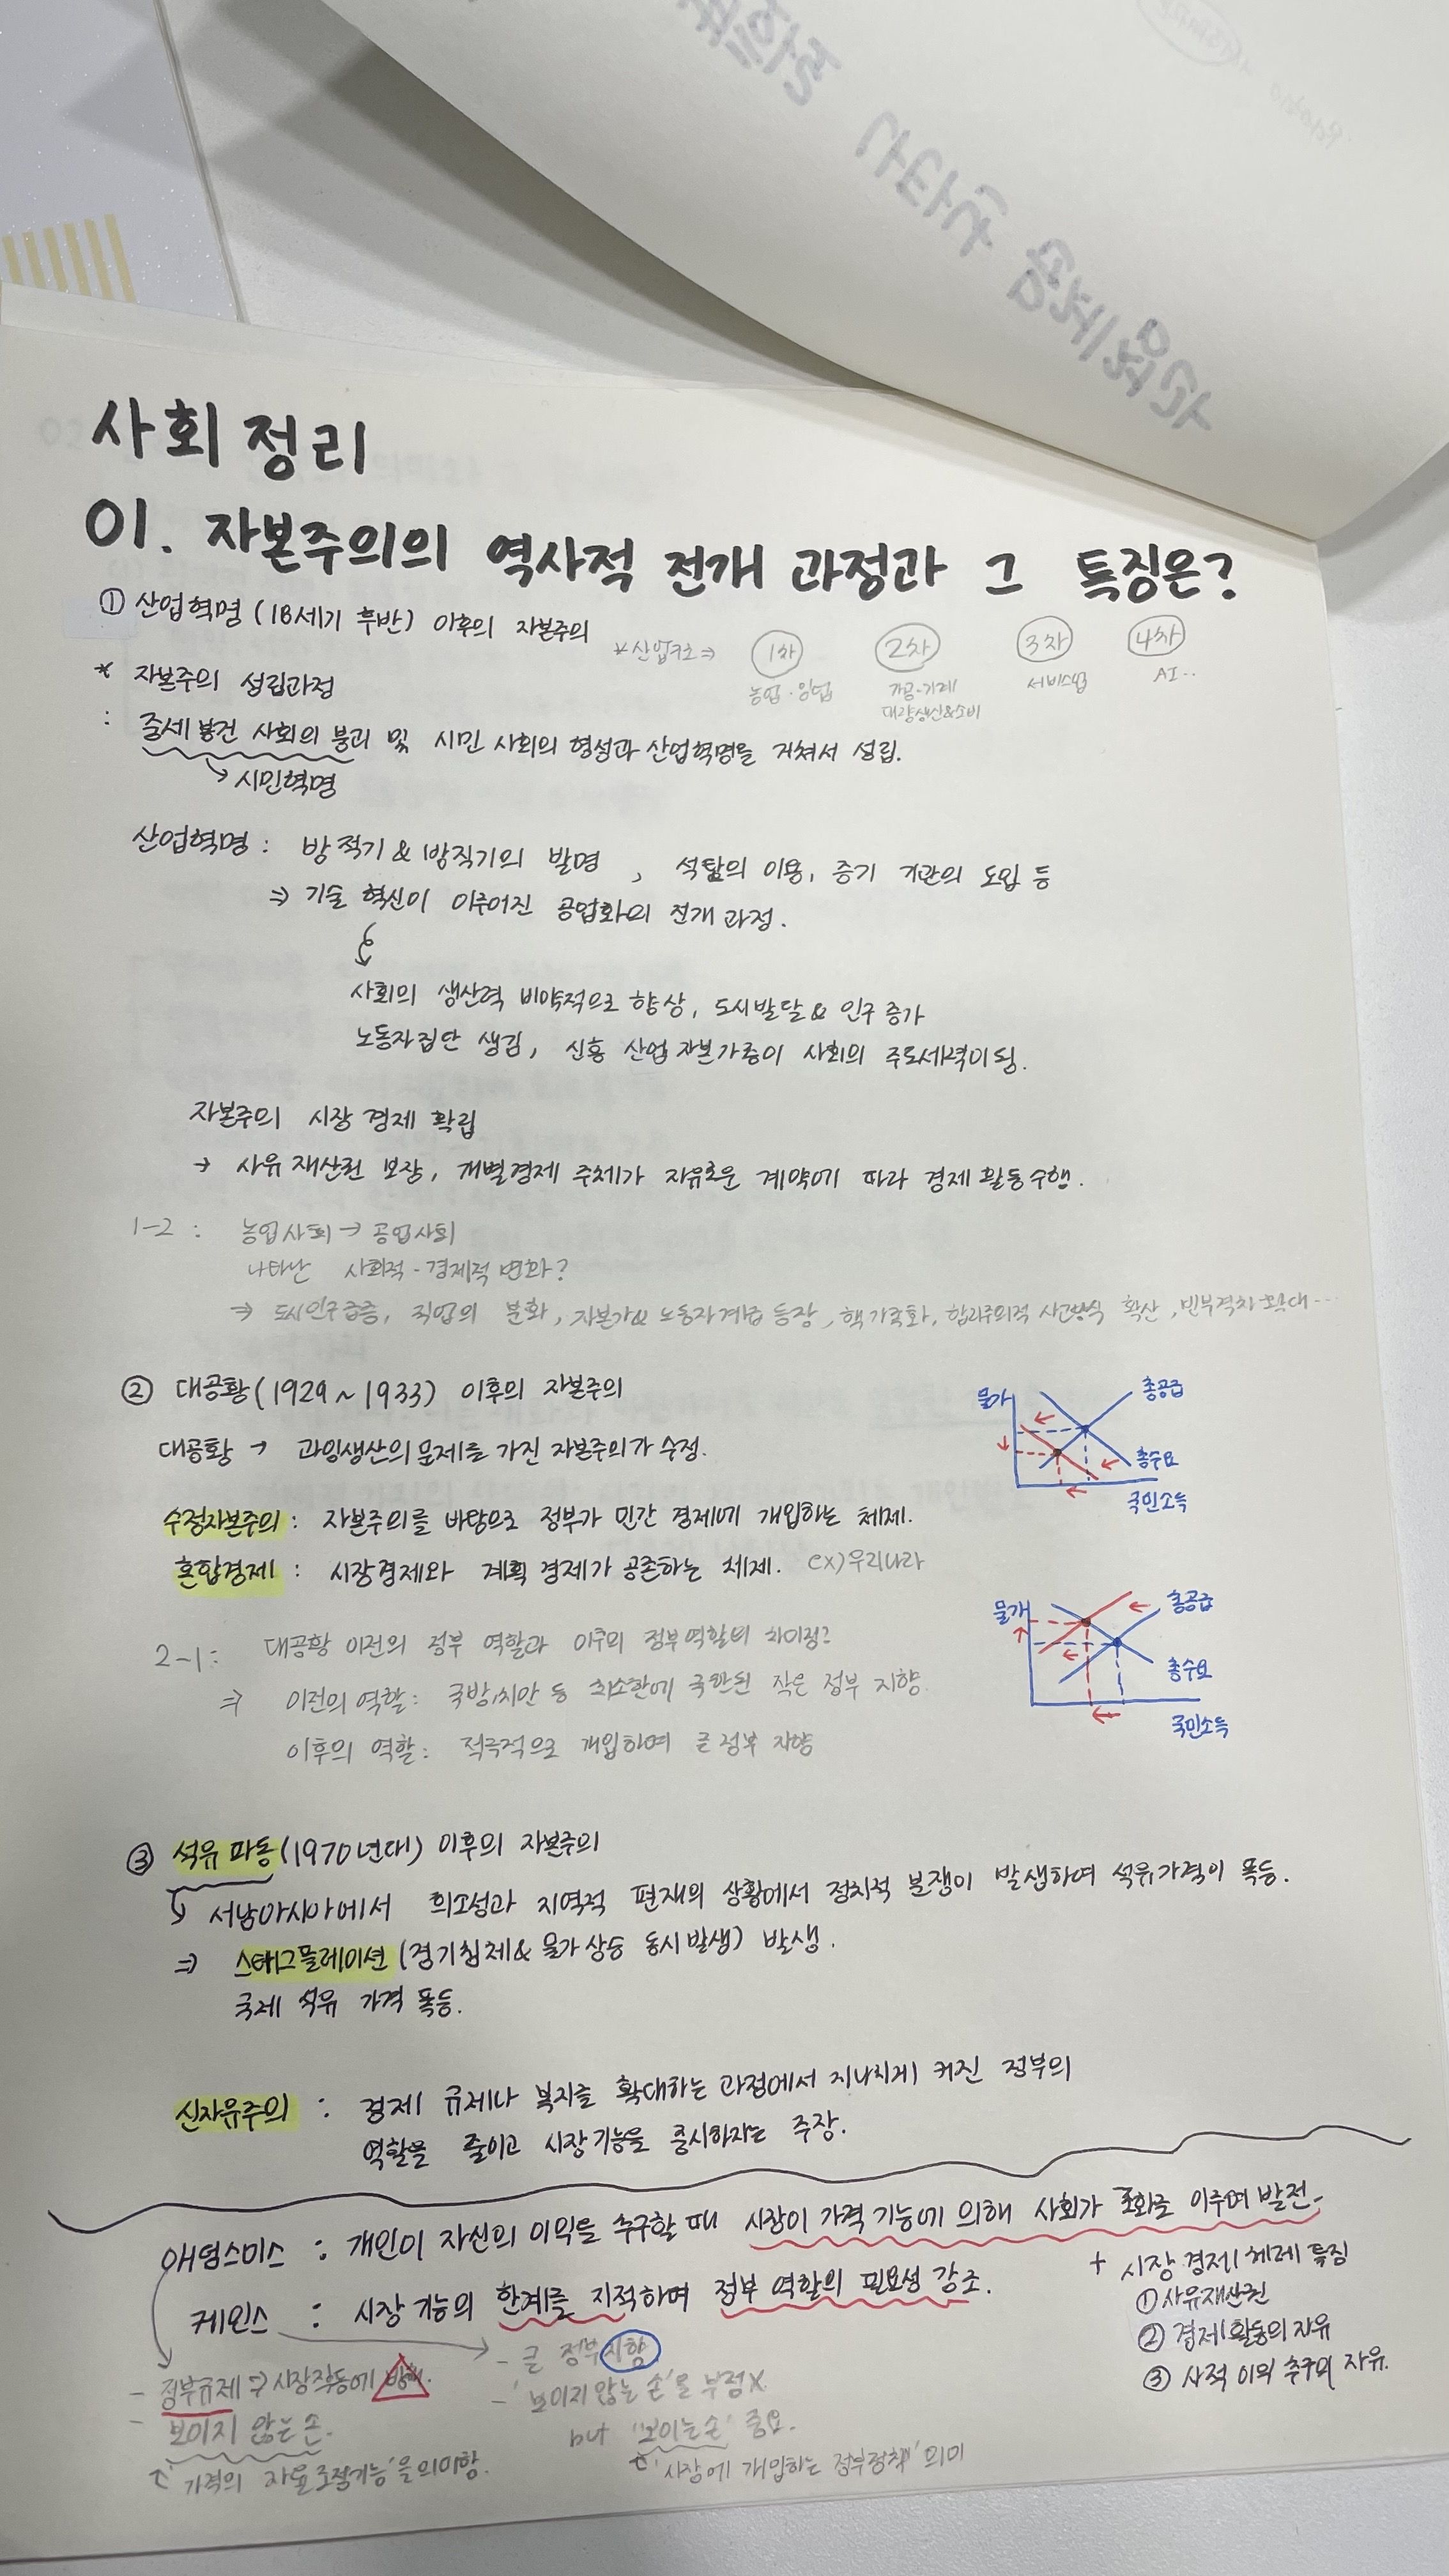 사회 정리
01. 자본주의의 역사적 전개 과정과 그 특징은?
① 산업혁명 (18세기 후반) 이후의 자본주의
*산업구조⇒ 1차 2차 3차 4차
농업·임업 가공·기계 서비스업 AI··
대량생산&소비
* 자본주의 성립과정
: 중세 봉건 사회의 붕괴 및 시민 사회의 형성과 산업혁명을 거쳐서 성립.
→시민혁명
산업혁명 : 방적기 & 방직기의 발명 , 석탄의 이용, 증기 기관의 도입 등
⇒ 기술 혁신이 이루어진 공업화의 전개 과정.
사회의 생산력 비약적으로 향상, 도시발달 & 인구 증가
노동자집단 생김, 신흥 산업 자본가층이 사회의 주도세력이 됨.
자본주의 시장 경제 확립
→ 사유 재산권 보장, 개별경제 주체가 자유로운 계약에 따라 경제 활동 수행.
1-2 : 농업사회 → 공업사회
나타난 사회적·경제적 변화?
⇒ 도시인구급증, 직업의 분화, 자본가& 노동자계급 등장, 핵가족화, 합리주의적 사고방식 확산, 빈부격차 확대···
② 대공황 (1929 ~ 1933) 이후의 자본주의
대공황 → 과잉생산의 문제를 가진 자본주의가 수정.
물가 총공급
총수요
국민소득
수정자본주의 : 자본주의를 바탕으로 정부가 민간 경제에 개입하는 체제.
혼합경제 : 시장경제와 계획 경제가 공존하는 체제. ex)우리나라
물가 총공급
총수요
국민소득
2-1 : 대공황 이전의 정부 역할과 이후의 정부역할의 차이점?
⇒ 이전의 역할: 국방,치안 등 최소한에 국한된 작은 정부 지향.
이후의 역할: 적극적으로 개입하며 큰 정부 지향
③ 석유 파동 (1970년대) 이후의 자본주의
↳ 서남아시아에서 희소성과 지역적 편재의 상황에서 정치적 분쟁이 발생하여 석유가격이 폭등.
⇒ 스태그플레이션 (경기침체& 물가 상승 동시 발생) 발생.
국제 석유 가격 폭등.
신자유주의 : 경제 규제나 복지를 확대하는 과정에서 지나치게 커진 정부의
역할을 줄이고 시장 기능을 중시하자는 주장.
애덤스미스 : 개인이 자신의 이익을 추구할 때 시장이 가격 기능에 의해 사회가 조화를 이루며 발전.
케인스 : 시장 기능의 한계를 지적하며 정부 역할의 필요성 강조.
- 정부규제 ⇒ 시장작동에 방해.
- 보이지 않는 손.
↑ '가격의 자율조절기능'을 의미함.
- 큰 정부 지향
- '보이지 않는 손'을 부정X.
but "보이는 손" 중요.
↑ '시장에 개입하는 정부정책' 의미
+ 시장 경제 체제 특징
① 사유재산권
② 경제 활동의 자유
③ 사적 이익 추구의 자유.